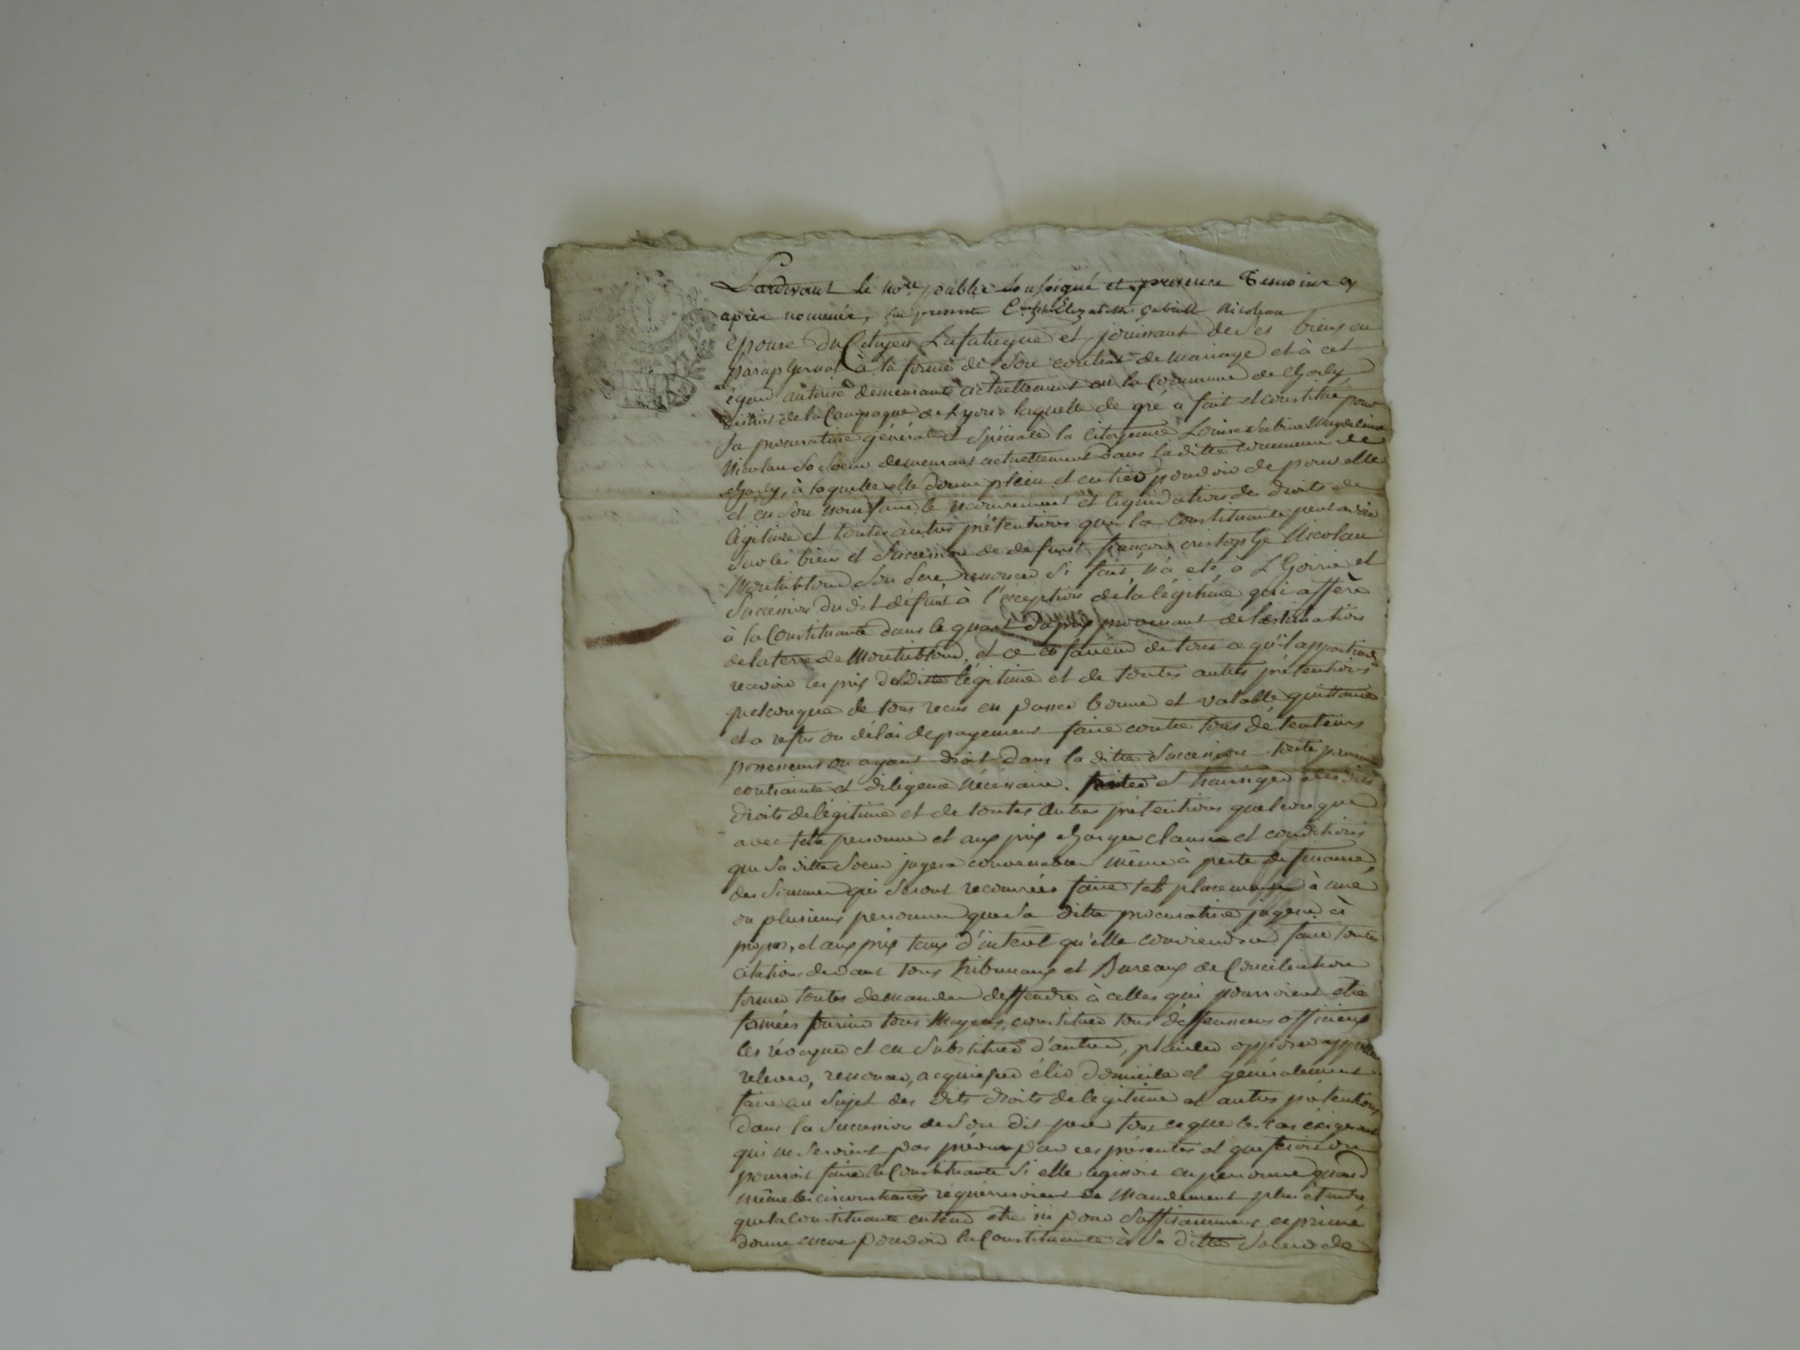 Pardevant le no.re public soussigné et presence temoins cy
après nommés, fut presente Elizabeth Gabrielle Nicolau
epouse du Citoyen Lafatigue et jouissant de ses biens en
paraphernal à la forme de son contrat de mariage et à cet
égard autorisé demeurante actuellement en la Commune de
district de la Campagne de Lyon laquelle de gré a fait et constitué pour
sa procuratrice générale et spéciale la Citoyenne Louise Sabine Magdelaine
Nicolau sa soeur demeurant actuellement dans la ditte commune de
à laquelle elle donne plein et entier pouvoir de pour elle
et en son nom faire le recouvrement et liquidation des droits de
légitime et toutes autres prétentions que la constituante peut avoir
sur les biens et succession de defunt françois cristophe Nicolau
Montribloud son pere, renoncer si fait n'a eté à L'hoirie et
succession du dit défunt à l'exception de la légitime qui affère
à la Constituante dans le quart du prix provenant de l'estimation
de la terre de Montribloud, et ce en faveur de tous ce qu'il appartiendra
recevoir les prix de laditte légitime et de toutes autres prétentions
quelconques de tous recus en passer bonne et valable quittance
et a refus ou délai de payement faire contre tous détenteurs
possesseurs ou ayant droit dans la ditte succession toute
contrainte et diligence nécessaire. traiter et transiger des dits
droits de légitime et de toutes autres prétentions quelconque
avec telle personne et aux prix charges clauses et conditions
que sa ditte soeur jugera convenables même à perte de finance,
des sommes qui seront recouvrées faire tels placements à une
ou plusieurs personnes que sa ditte procuratrice jugera à
propos, et aux prix taux d'intérêt qu'elle conviendra faire toutes
citations devant tous tribunaux et Bureaux de Conciliation
former toutes demandes deffendre à celles qui pourroient etre
formées fournir tous moyens, constituer tous deffenseurs officieux
les révoquer et en substituer d'autres, plaider opposer appeller
relever, renoncer, acquiescer élir domicile et généralement
faire au sujet des dits droits de légitime et autres prétentions
dans la succession de son dit pere tous ce que les cas éxigeront
qui ne seroient pas prévus par ces présentes et que feroit ou
pourroit faire la Constituante si elle agissoit en personne quand
même les circonstances réquerreroient de mandement plus étendu
que la constituante entend etre ici pour suffisamment exprimé
donne encore pouvoir la Constituante à sa ditte soeur de